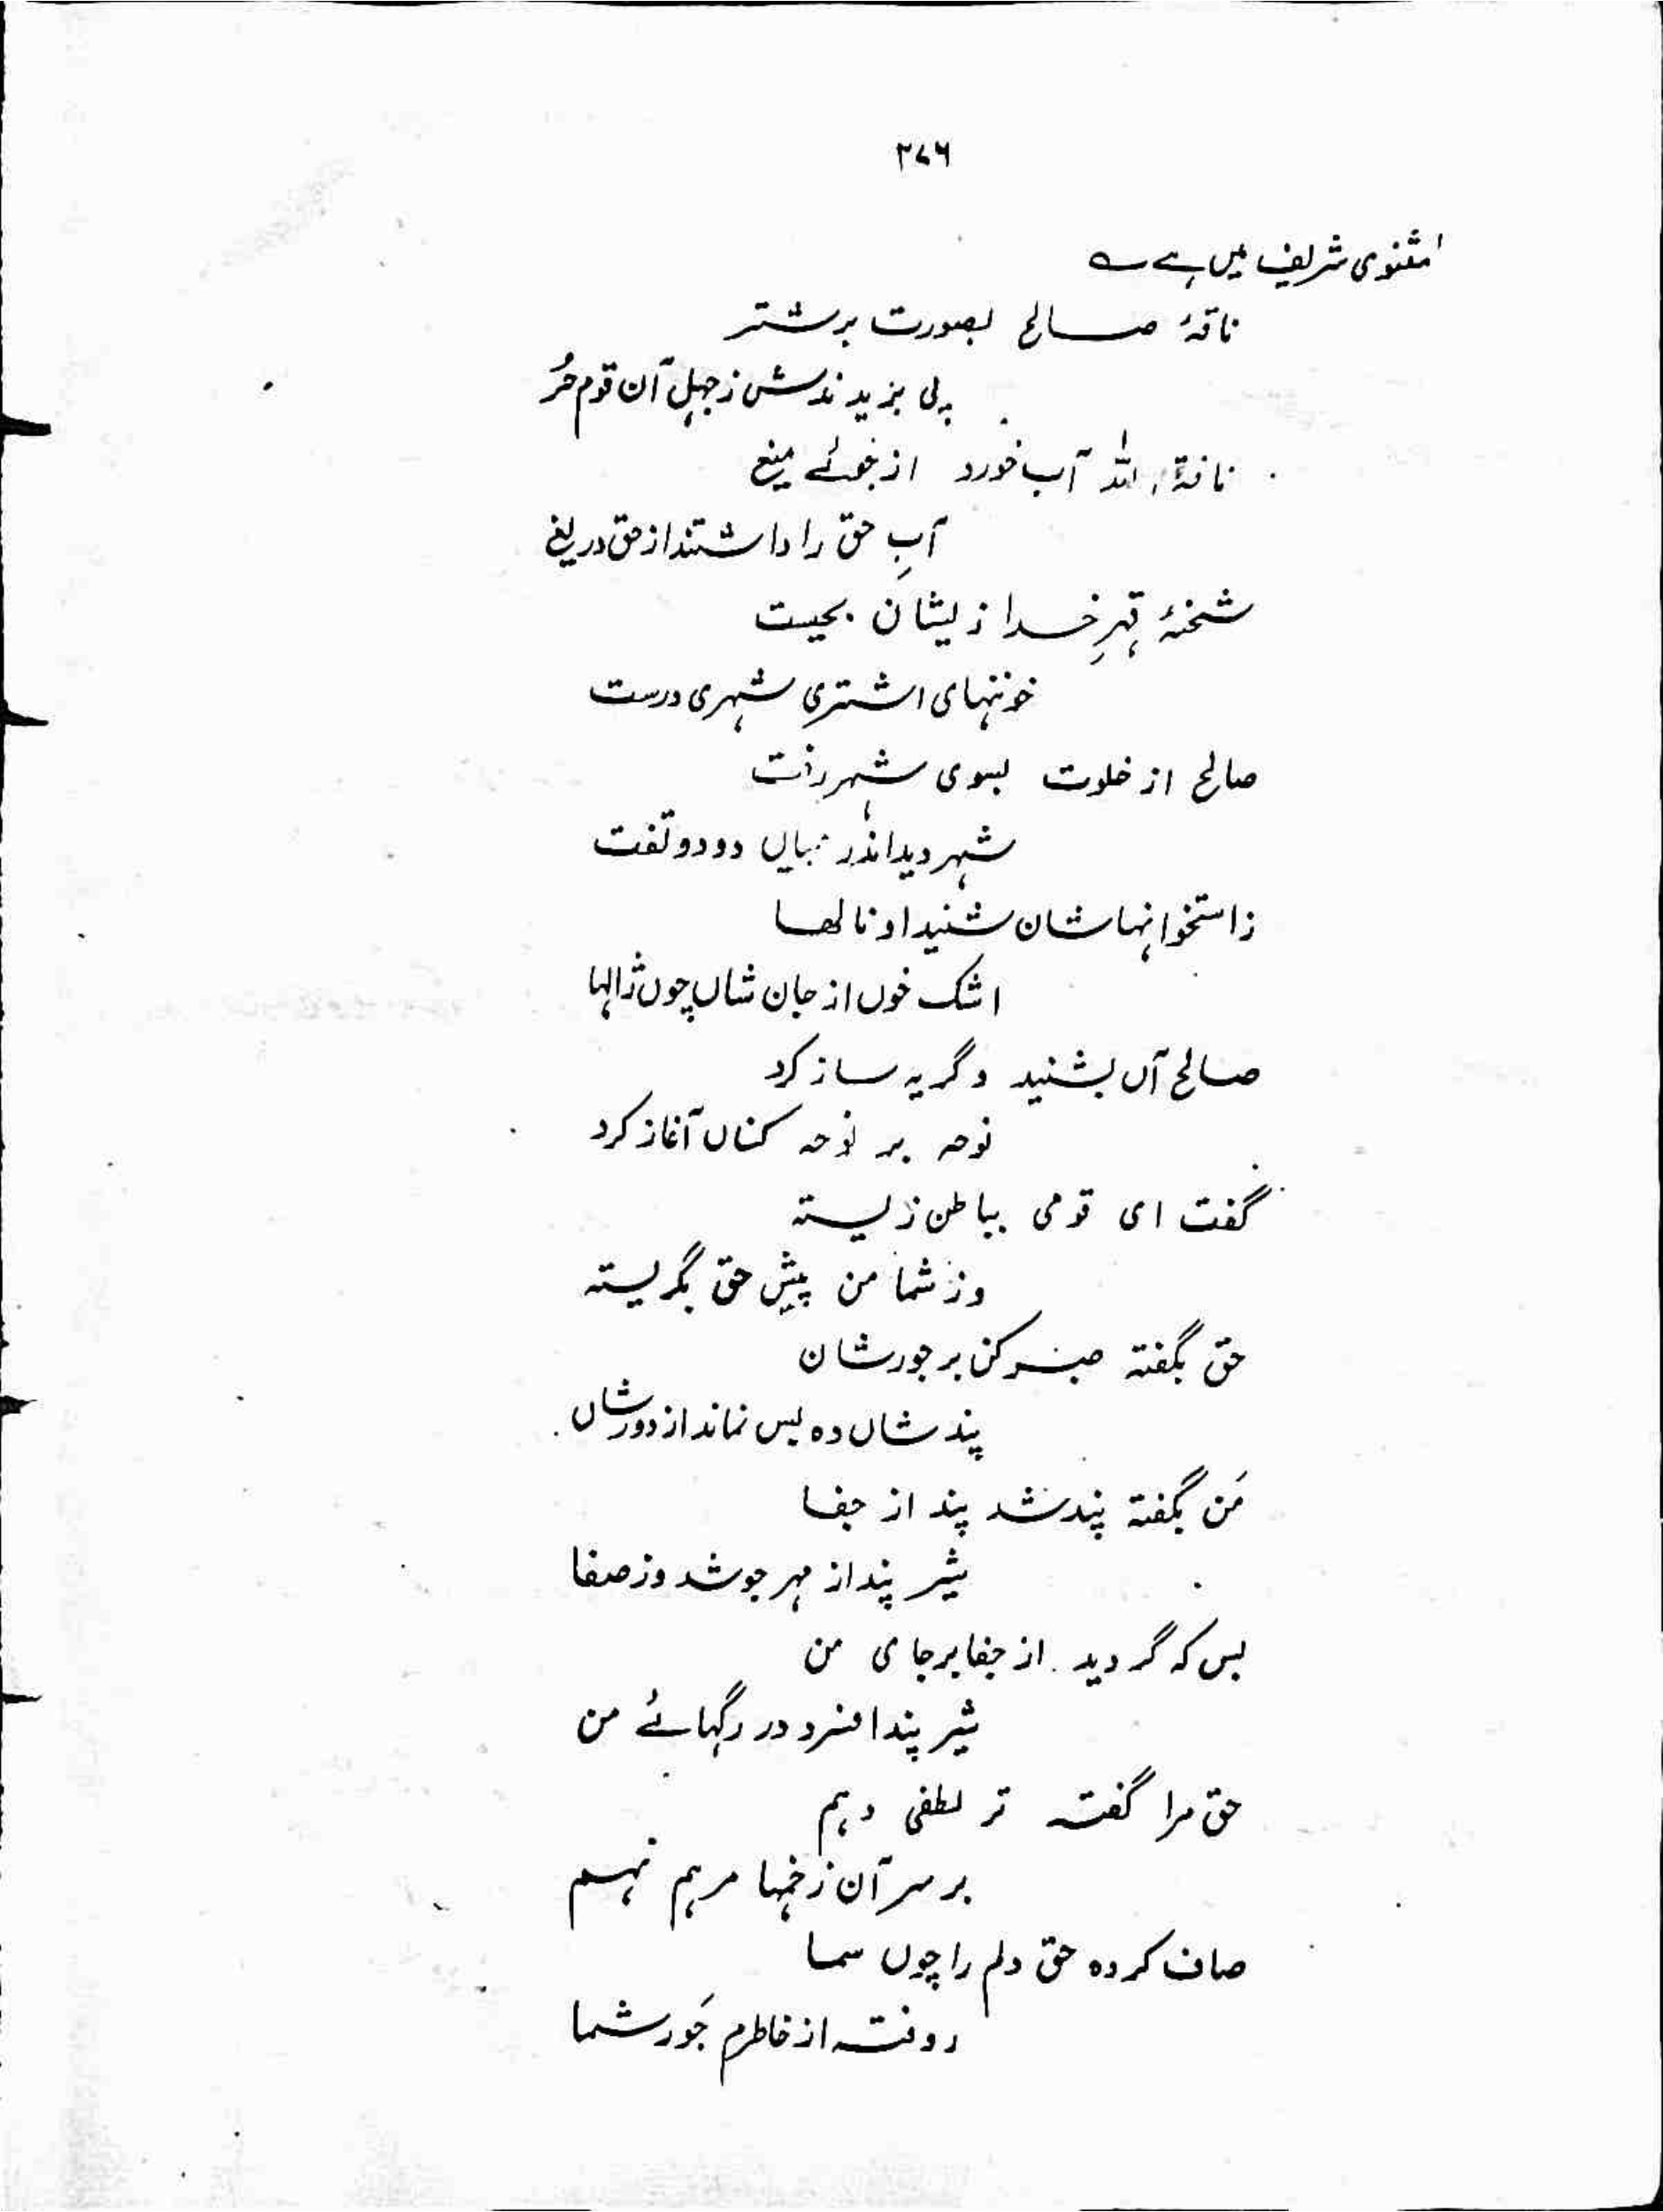 ۲۷۶
مثنوی شریف میں ہے
ناقۂ صالح بصورت بر شتر
پی بزیدندش ز جہل آن قوم حُر
ناقۃ اللہ آب خورد از جوئے میغ
آبِ حق را داشتند از حق دریغ
شحنۂ قہرِ خدا زیشان بجست
خونبہای اشتری شہری درست
صالح از خلوت بسوی شہر رفت
شہر دید اندر میاں دود و تفت
ز استخوانہا شان شنید او نالھا
اشک خوں از جان شاں چوں ژالہا
صالح آں بشنید و گریہ ساز کرد
نوحہ بر نوحہ کناں آغاز کرد
گفت ای قومی بباطن زیستہ
وز شما من پیشِ حق بگریستہ
حق بگفتہ صبر کن بر جورشان
پند شاں دہ بس نماند از دورشاں
مَن بگفتہ پند شد پند از جفا
شیر پند از مہر جوشد وز صفا
بس کہ گردید از جفا بر جای من
شیر پند افسرد در رگہائے من
حق مرا گفتہ تر لطفی دہم
بر سر آن زخمہا مرہم نہم
صاف کردہ حق دلم را چوں سما
روفتہ از خاطرم جَور شما